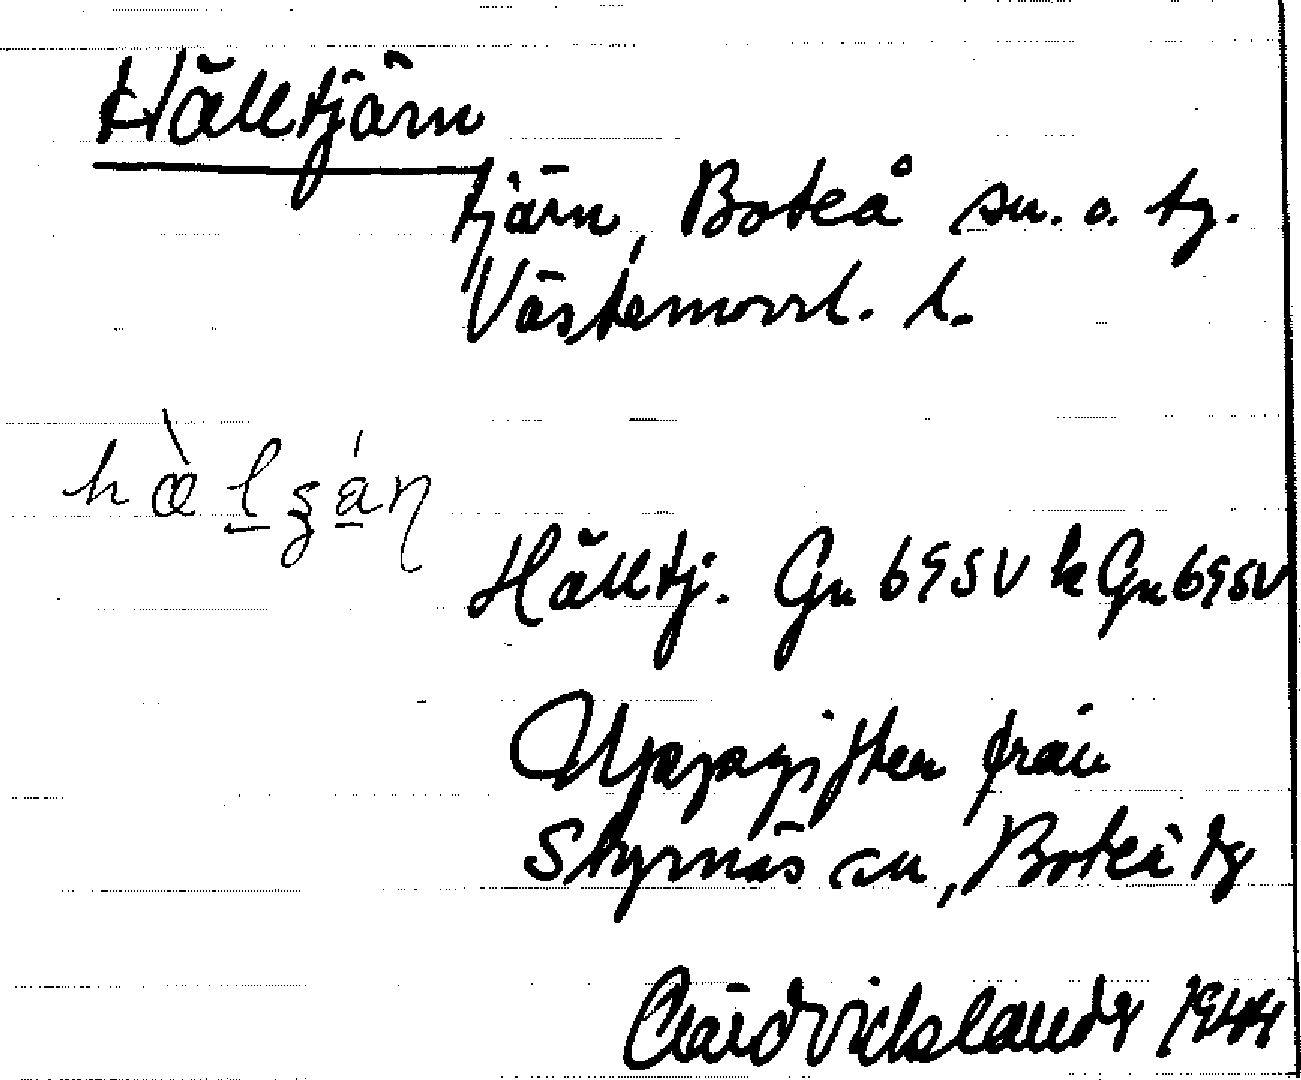 Hälltjärn
tjärn, Boteå sn. o. tg.
Västernorrl. l.
Hälltj. Gn 695V k Gn 695V
Uppgiften från
Styrnäs sn, Boteå tg
1944